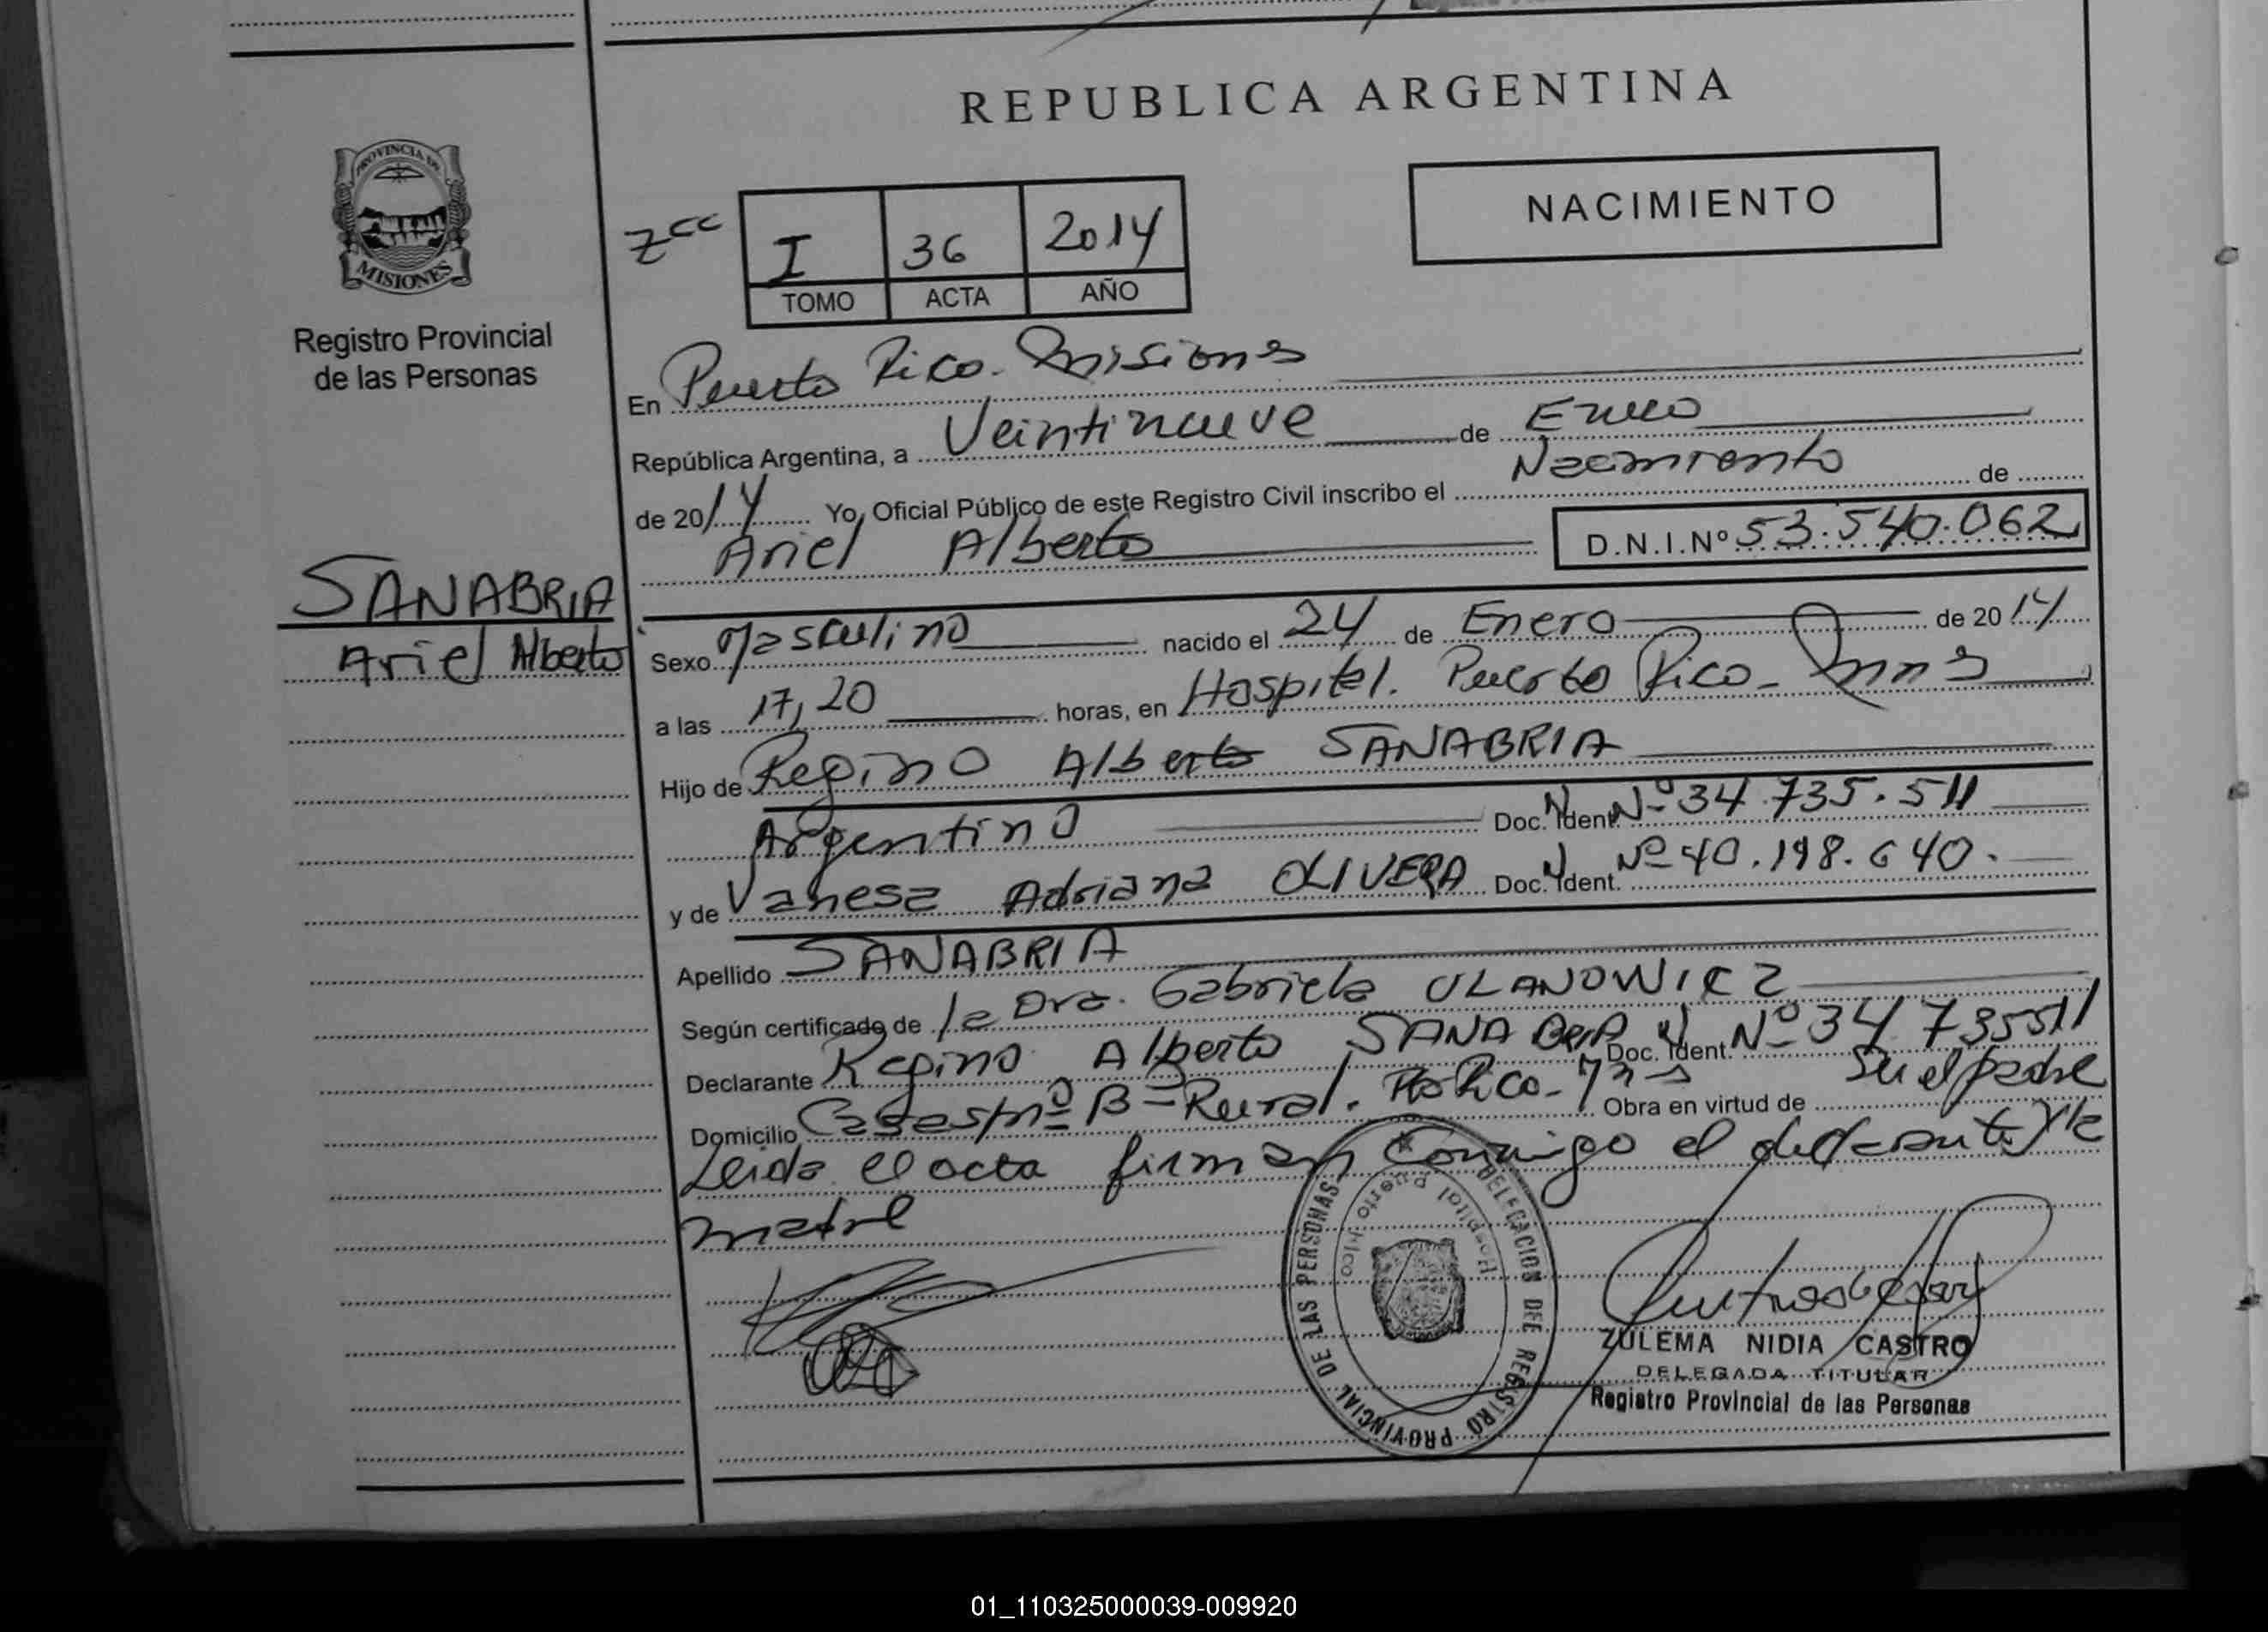 REPUBLICA ARGENTINA
PROVINCIA DE
MISIONES
Registro Provincial
de las Personas
NACIMIENTO
I 36 2014
TOMO ACTA AÑO
En Puerto Rico. Misiones
República Argentina, a Veintinueve de Enero
de 2014 Yo, Oficial Público de este Registro Civil inscribo el Nacimiento de
Ariel Alberto D.N.I.Nº 53.540.062
SANABRIA
Ariel Alberto
Sexo Masculino nacido el 24 de Enero de 2014
a las 17,20 horas, en Hospital. Puerto Rico - Mnes
Hijo de Regino Alberto SANABRIA
Argentino Doc. Ident. Nº 34.735.511
y de Vanesa Adriana OLIVERA Doc. Ident. Nº 40.198.640.
Apellido SANABRIA
Según certificado de la Dra. Gabriela ULANOWICZ
Declarante Regino Alberto SANABRIA Doc. Ident. Nº 34735511
Domicilio B= Rural. Pto Rico - Mnes Obra en virtud de Su el padre
Leida el acta firman conmigo el declarante y la
madre
DELEGACION DEL REGISTRO PROVINCIAL DE LAS PERSONAS
Hospital Puerto Rico
ZULEMA NIDIA CASTRO
DELEGADA TITULAR
Registro Provincial de las Personas
01_110325000039-009920